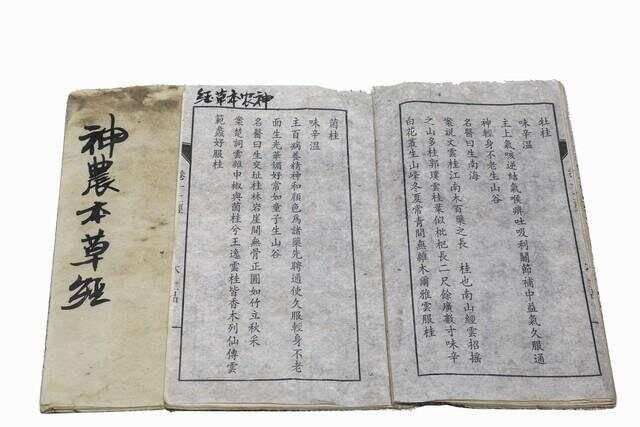 神農本草經
牡桂
味辛溫
主上氣咳逆結氣喉痹吐吸利關節補中益氣久服通
神輕身不老生山谷
名醫曰生南海
案說文雲桂江南木百藥之長 桂也南山經雲招搖
之山多桂郭璞雲桂葉似枇杷長二尺餘廣數寸味辛
白花叢生山峰冬夏常青間無雜木爾雅雲服桂
神农本草经
菌桂
味辛溫
主百病養精神和顏色為諸藥先聘通使久服輕身不老
面生光華媚好常如童子生山谷
名醫曰生交址桂林岩崖間無骨正圓如竹立秋采
案楚詞雲雜申椒與菌桂兮王逸雲桂皆香木列仙傳雲
範蠡好服桂